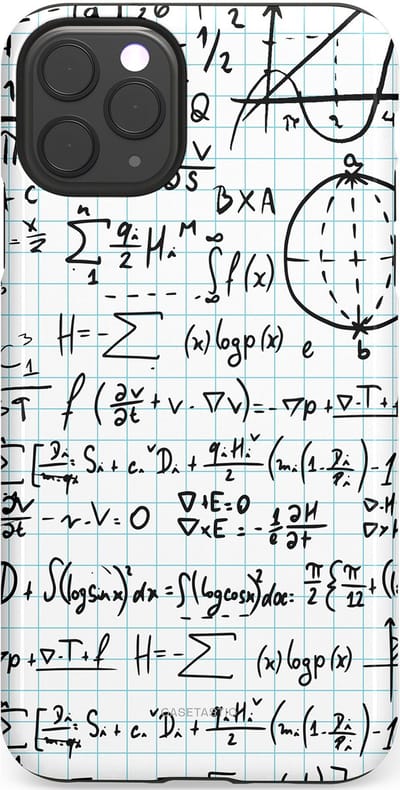 1/2 2
Q
V
∂S
+ C
B×A
= x/2
n ∑ 1 q_i/2 H_i^M
∞ ∫ ∞ f(x)
π 2 4
a
b
H=-∑ (x) log p (x) e
f (∂v/∂t + v · ∇v) = - ∇p + ∇·T +
∑ [D_i/m·qx = S_i + c_i^v D_i + q_i H_i^v/2 (m_i (1 - D_i/P_i) - 1
∂v/∂t - r · V = 0
∇+E=0
∇×E = - 1/e ∂H/∂t
∇·H
D + ∫(log sin x)² dx = ∫(log cos x)² dx = π/2 {π/12 + (
∇p + ∇·T + f
H=-∑ (x) log p (x)
CASETASTIC
∑ [D_i/m·qx = S_i + c_i^v D_i + q_i H_i^v/2 (m_i (1 - D_i/P_i) - 1